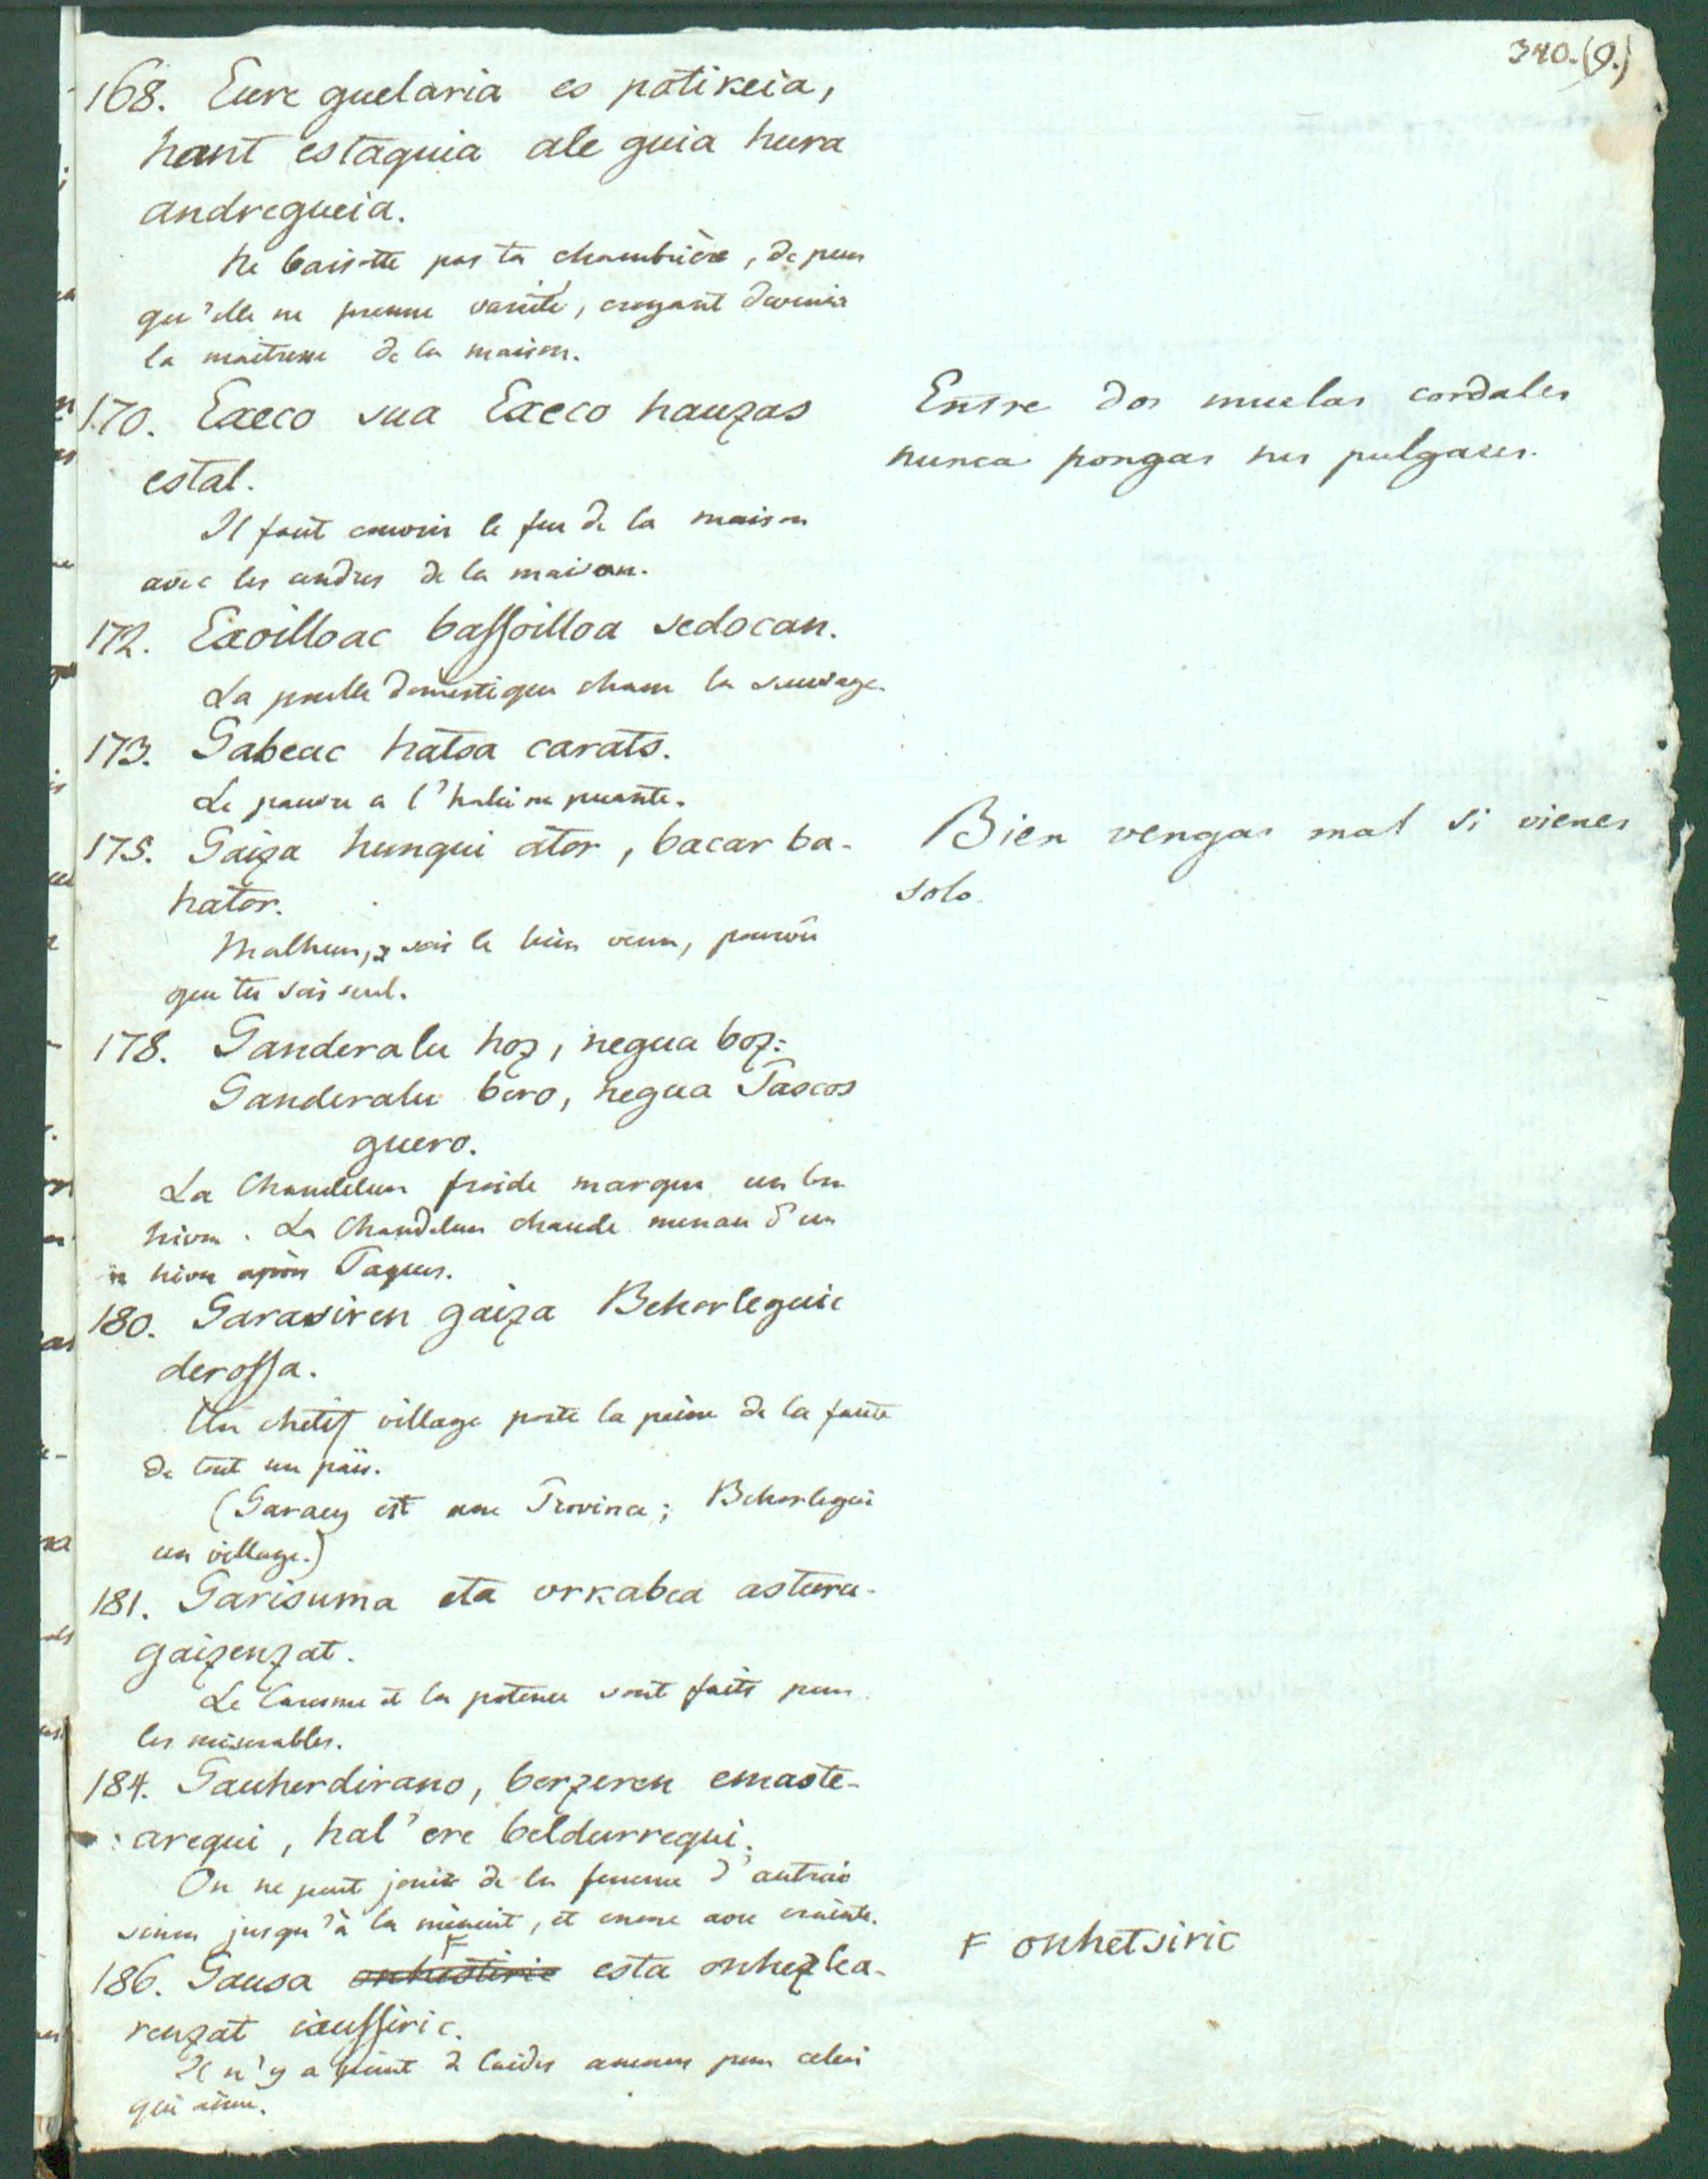 340.(9.)
168. Eure guelaria es potikeia,
hant estaquia ale guia hura
andregueia.
Ne baisotte pas ta chambrière, de peur
qu'elle ne prenne vanité, croyant devenir
la maitresse de la maison.
170. Execo sua Execo hauzas
estal.
Il faut couvrir le feu de la maison
avec les cendres de la maison.
Entre dos muelas cordales
nunca pongas tus pulgares.
172. Exoilloac bassoilloa sedocan.
La poulle domestique chasse la sauvage.
173. Gabeac hatsa carats.
Le pauvre a l'haleine puante.
175. Gaiza hungui ator, bacar ba-
hator.
Malheur, sois le bien venu, pourvû
que tu sois seul.
Bien vengas mal si vienes
solo.
178. Ganderalu hoz, negua boz:
Ganderalu bero, negua Pascos
guero.
La Chandeleur froide marque un bon
hiver. La Chandeleur chaude menace d'un
hiver après Paques.
180. Garasiren gaiza Behorleguic
derossa.
Un chetif village porte la peine de la faute
de tout un païs.
(Garacy est une Province; Behorlegui
un village.)
181. Garisuma eta urkabea asturu-
gaizenzat.
Le Caresme et la potence sont faits pour
les miserables.
184. Gauherdirano, berzeren emaste-
arequi, hal'ere beldurrequi.
On ne peut jouir de la femme d'autrui
sinon jusqu'à la minuit, et encore avec crainte.
186. Gausa onhestiric esta onhezlea-
renzat ixussiric.
F onhetsiric
Il n'y a point de laides amours pour celui
qui aime.